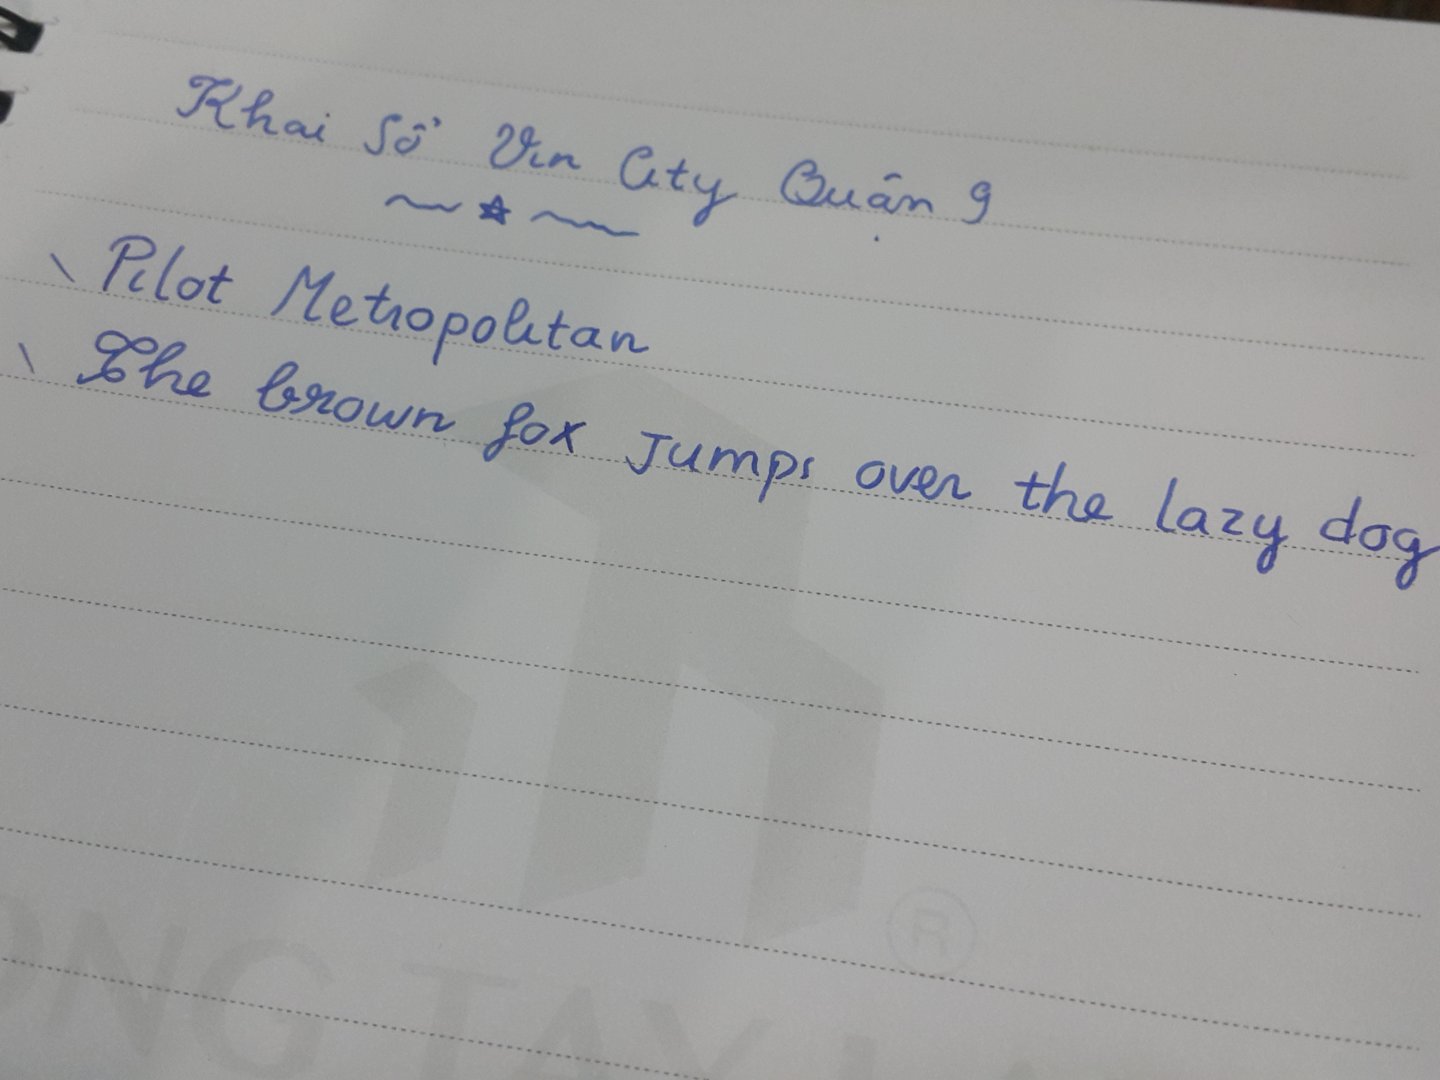 Khai Sổ Vin City Quận 9
~ ☆ ~
\ Pilot Metropolitan
\ The brown fox Jumps over the lazy dog
®
ONG TAY L